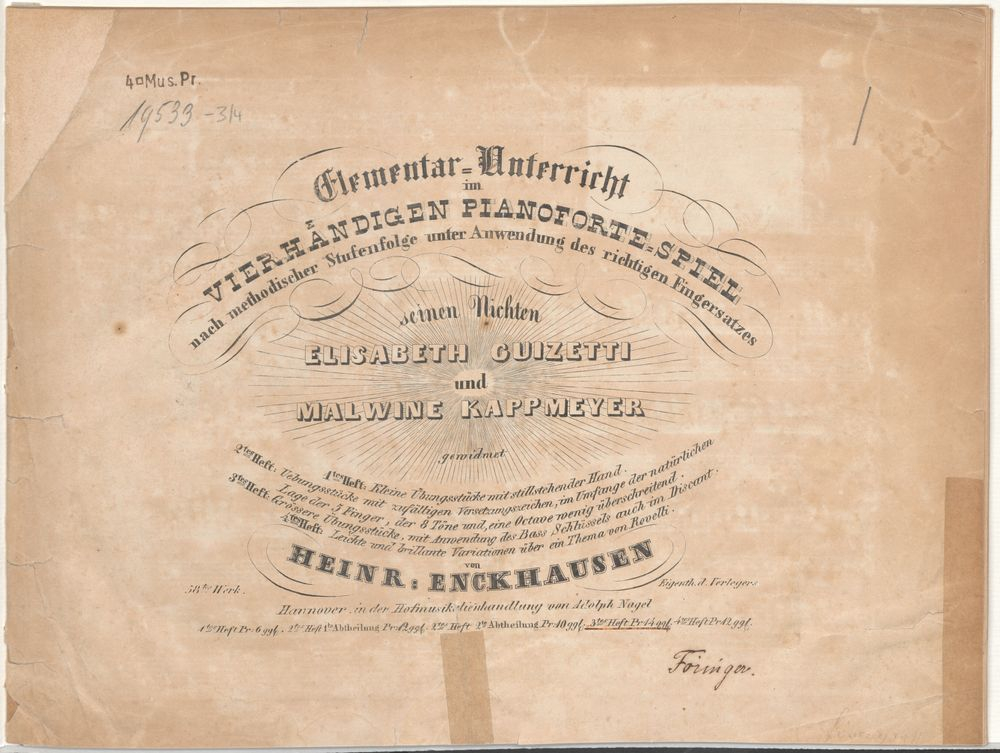 4□Mus.Pr.
19533-3/4
Elementar=Unterricht
im
VIERHÄNDIGEN PIANOFORTE=SPIEL
nach methodischer Stufenfolge unter Anwendung des richtigen Fingersatzes
seinen Nichten
ELISABETH GUIZETTI
und
MALWINE KAPPMEYER
gewidmet
1tes Heft: Kleine Übungsstücke mit stillstehender Hand.
2tes Heft: Uebungsstücke mit zufälligen Versetzungszeichen, im Umfange der natürlichen
Lage der 5 Finger, der 8 Töne und, eine Octave wenig überschreitend.
3tes Heft: Grössere Übungsstücke, mit Anwendung des Bass Schlüssels auch im Discant.
4tes Heft: Leichte und brillante Variationen über ein Thema von Rovelli.
von
HEINR: ENCKHAUSEN
58tes Werk. Eigenth. d. Verlegers
Hannover in der Hofmusikalienhandlung von Adolph Nagel
1tes Heft Pr. 6 ggl. 2tes Heft 1te Abtheilung Pr. 12 ggl. 2tes Heft 2te Abtheilung Pr. 10 ggl. 3tes Heft Pr. 14 ggl. 4tes Heft Pr. 12 ggl.
Föringer.